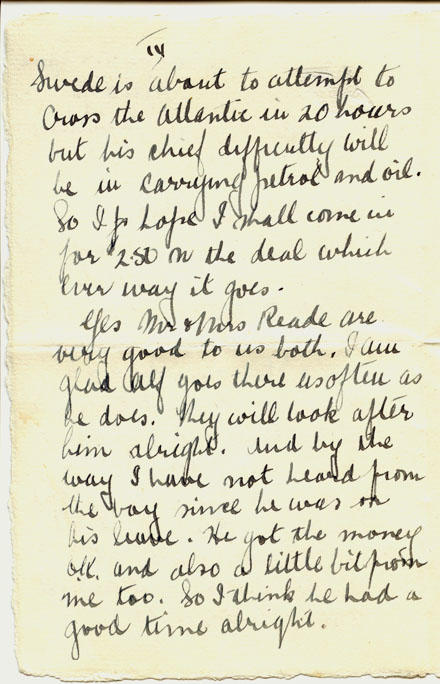 IV
Swede is about to attempt to
cross the Atlantic in 20 hours
but his chief difficulty will
be in carrying petrol and oil.
So I hope I shall come in
for 2.50 on the deal which
ever way it goes.
Yes Mr & Mrs Reade are
very good to us both. I am
glad Alf goes there as often as
he does. They will look after
him alright. And by the
way I have not heard from
the boy since he was on
his leave. He got the money
O.K. and also a little bit from
me too. So I think he had a
good time alright.